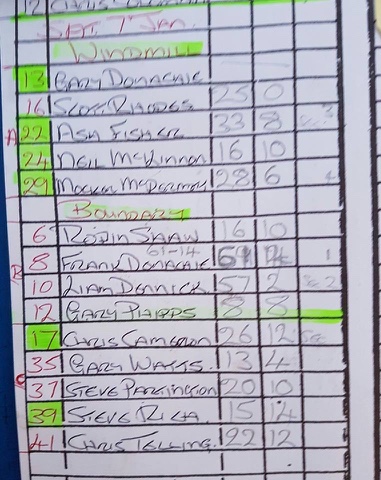 SAT. 7 JAN.
WINDMILL
13 GARY DONACHIE
16 SCOTT RHODES 25 0
A 22 ASH FISHER 33 8 Sec 3
24 NEIL McKINNON 16 10
29 McDERMOTT 28 6 4
BOUNDARY
6 ROBIN SHAW 16 10
61-14
B 8 FRANK DONACHIE 1
10 LIAM DENNICK 57 2 Sec 2
12 GARY PHIPPS 8 8
17 CHRIS CAMERON 26 12 Sec
35 GARY WATTS 13 4
C 37 STEVE PARTINGTON 20 10
39 STEVE RICH 15 14
41 CHRIS TELLING. 22 12